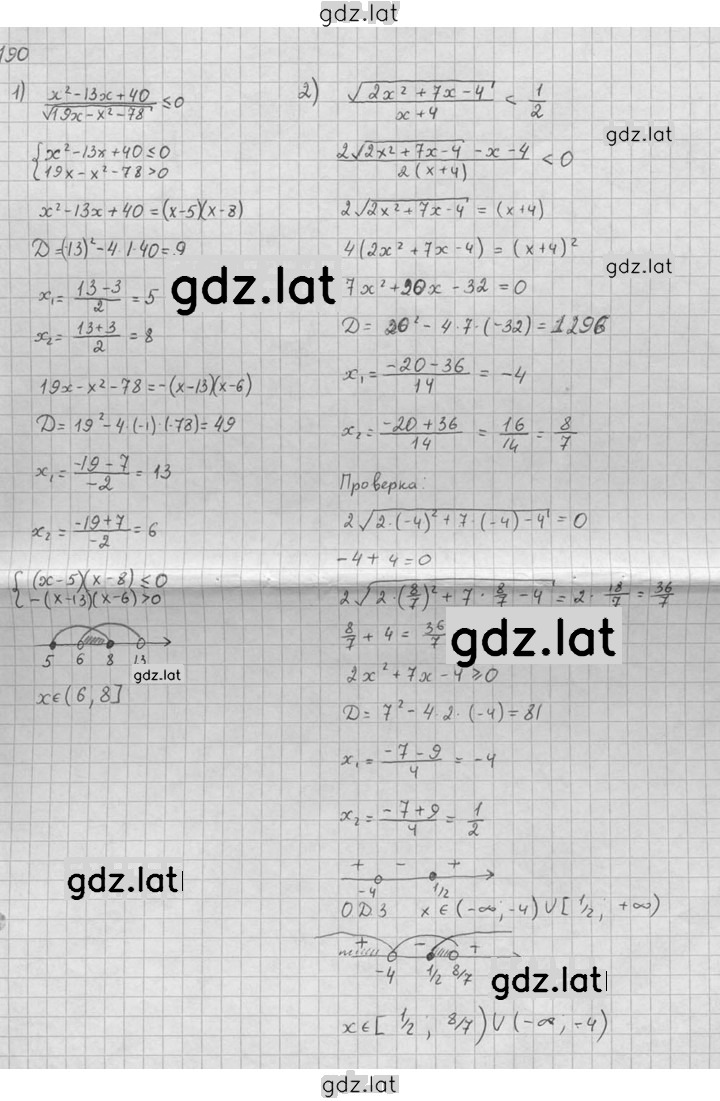 gdz.lat
190
1) (x² - 13x + 40)/√(19x - x² - 78) ≤ 0
{ x² - 13x + 40 ≤ 0
19x - x² - 78 > 0
x² - 13x + 40 = (x-5)(x-8)
D = (-13)² - 4·1·40 = 9
x₁ = (13-3)/2 = 5
x₂ = (13+3)/2 = 8
19x - x² - 78 = -(x-13)(x-6)
D = 19² - 4·(-1)·(-78) = 49
x₁ = (-19-7)/-2 = 13
x₂ = (-19+7)/-2 = 6
{ (x-5)(x-8) ≤ 0
-(x-13)(x-6) > 0
5 6 8 13
gdz.lat
x ∈ (6, 8]
gdz.lat
2) √(2x² + 7x - 4)/(x+4) < 1/2
gdz.lat
(2√(2x² + 7x - 4) - x - 4)/(2(x+4)) < 0
2√(2x² + 7x - 4) = (x+4)
4(2x² + 7x - 4) = (x+4)²
gdz.lat
gdz.lat
7x² + 20x - 32 = 0
D = 20² - 4·7·(-32) = 1296
x₁ = (-20-36)/14 = -4
x₂ = (-20+36)/14 = 16/14 = 8/7
Проверка:
2√(2·(-4)² + 7·(-4) - 4) = 0
-4 + 4 = 0
2√(2·(8/7)² + 7·8/7 - 4) = 2·18/7 = 36/7
8/7 + 4 = 36/7
gdz.lat
2x² + 7x - 4 ≥ 0
D = 7² - 4·2·(-4) = 81
x₁ = (-7-9)/4 = -4
x₂ = (-7+9)/4 = 1/2
+ - +
-4 1/2
ОДЗ x ∈ (-∞; -4) ∪ [1/2; +∞)
+ - +
-4 1/2 8/7
gdz.lat
x ∈ [1/2; 8/7) ∪ (-∞; -4)
gdz.lat